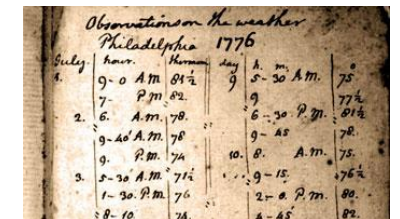 Observations on the weather
Philadelphia 1776
July. hour. thermom day h. m. o
1. 9-0 A.M 81½ 9 5-30 A.M. 75
7- P.M 82. 9 77½
2. 6. A.M. 78 6-30 P.M. 81½
9-40' A.M. 78 9-45 78.
9. P.M. 74 10. 8. A.M. 75.
3. 5-30 A.M. 71½ 9-15. 76½
1-30. P.M. 76 2-0. P.M. 80
8-10. 74. 4-45 82.